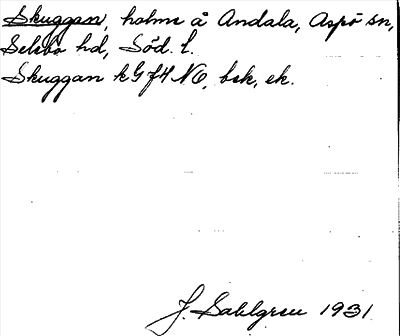 Skuggan, holme å Andala, Aspö sn,
Selebo hd, Söd. l.
Skuggan k G f4 NO, bsk, ek.
J. Sahlgren 1931